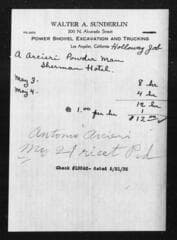 WALTER A. SUNDERLIN
200 N. Alvarado Street
POWER SHOVEL, EXCAVATION AND TRUCKING
Los Angeles, California Holloway Job
A Arcieri Powder Man
Sherman Hotel.
May 3. 8 hr
May 4. 4 hr
12 hr
@ 1.00 per hr 1
$12.00
Antonio Arcieri